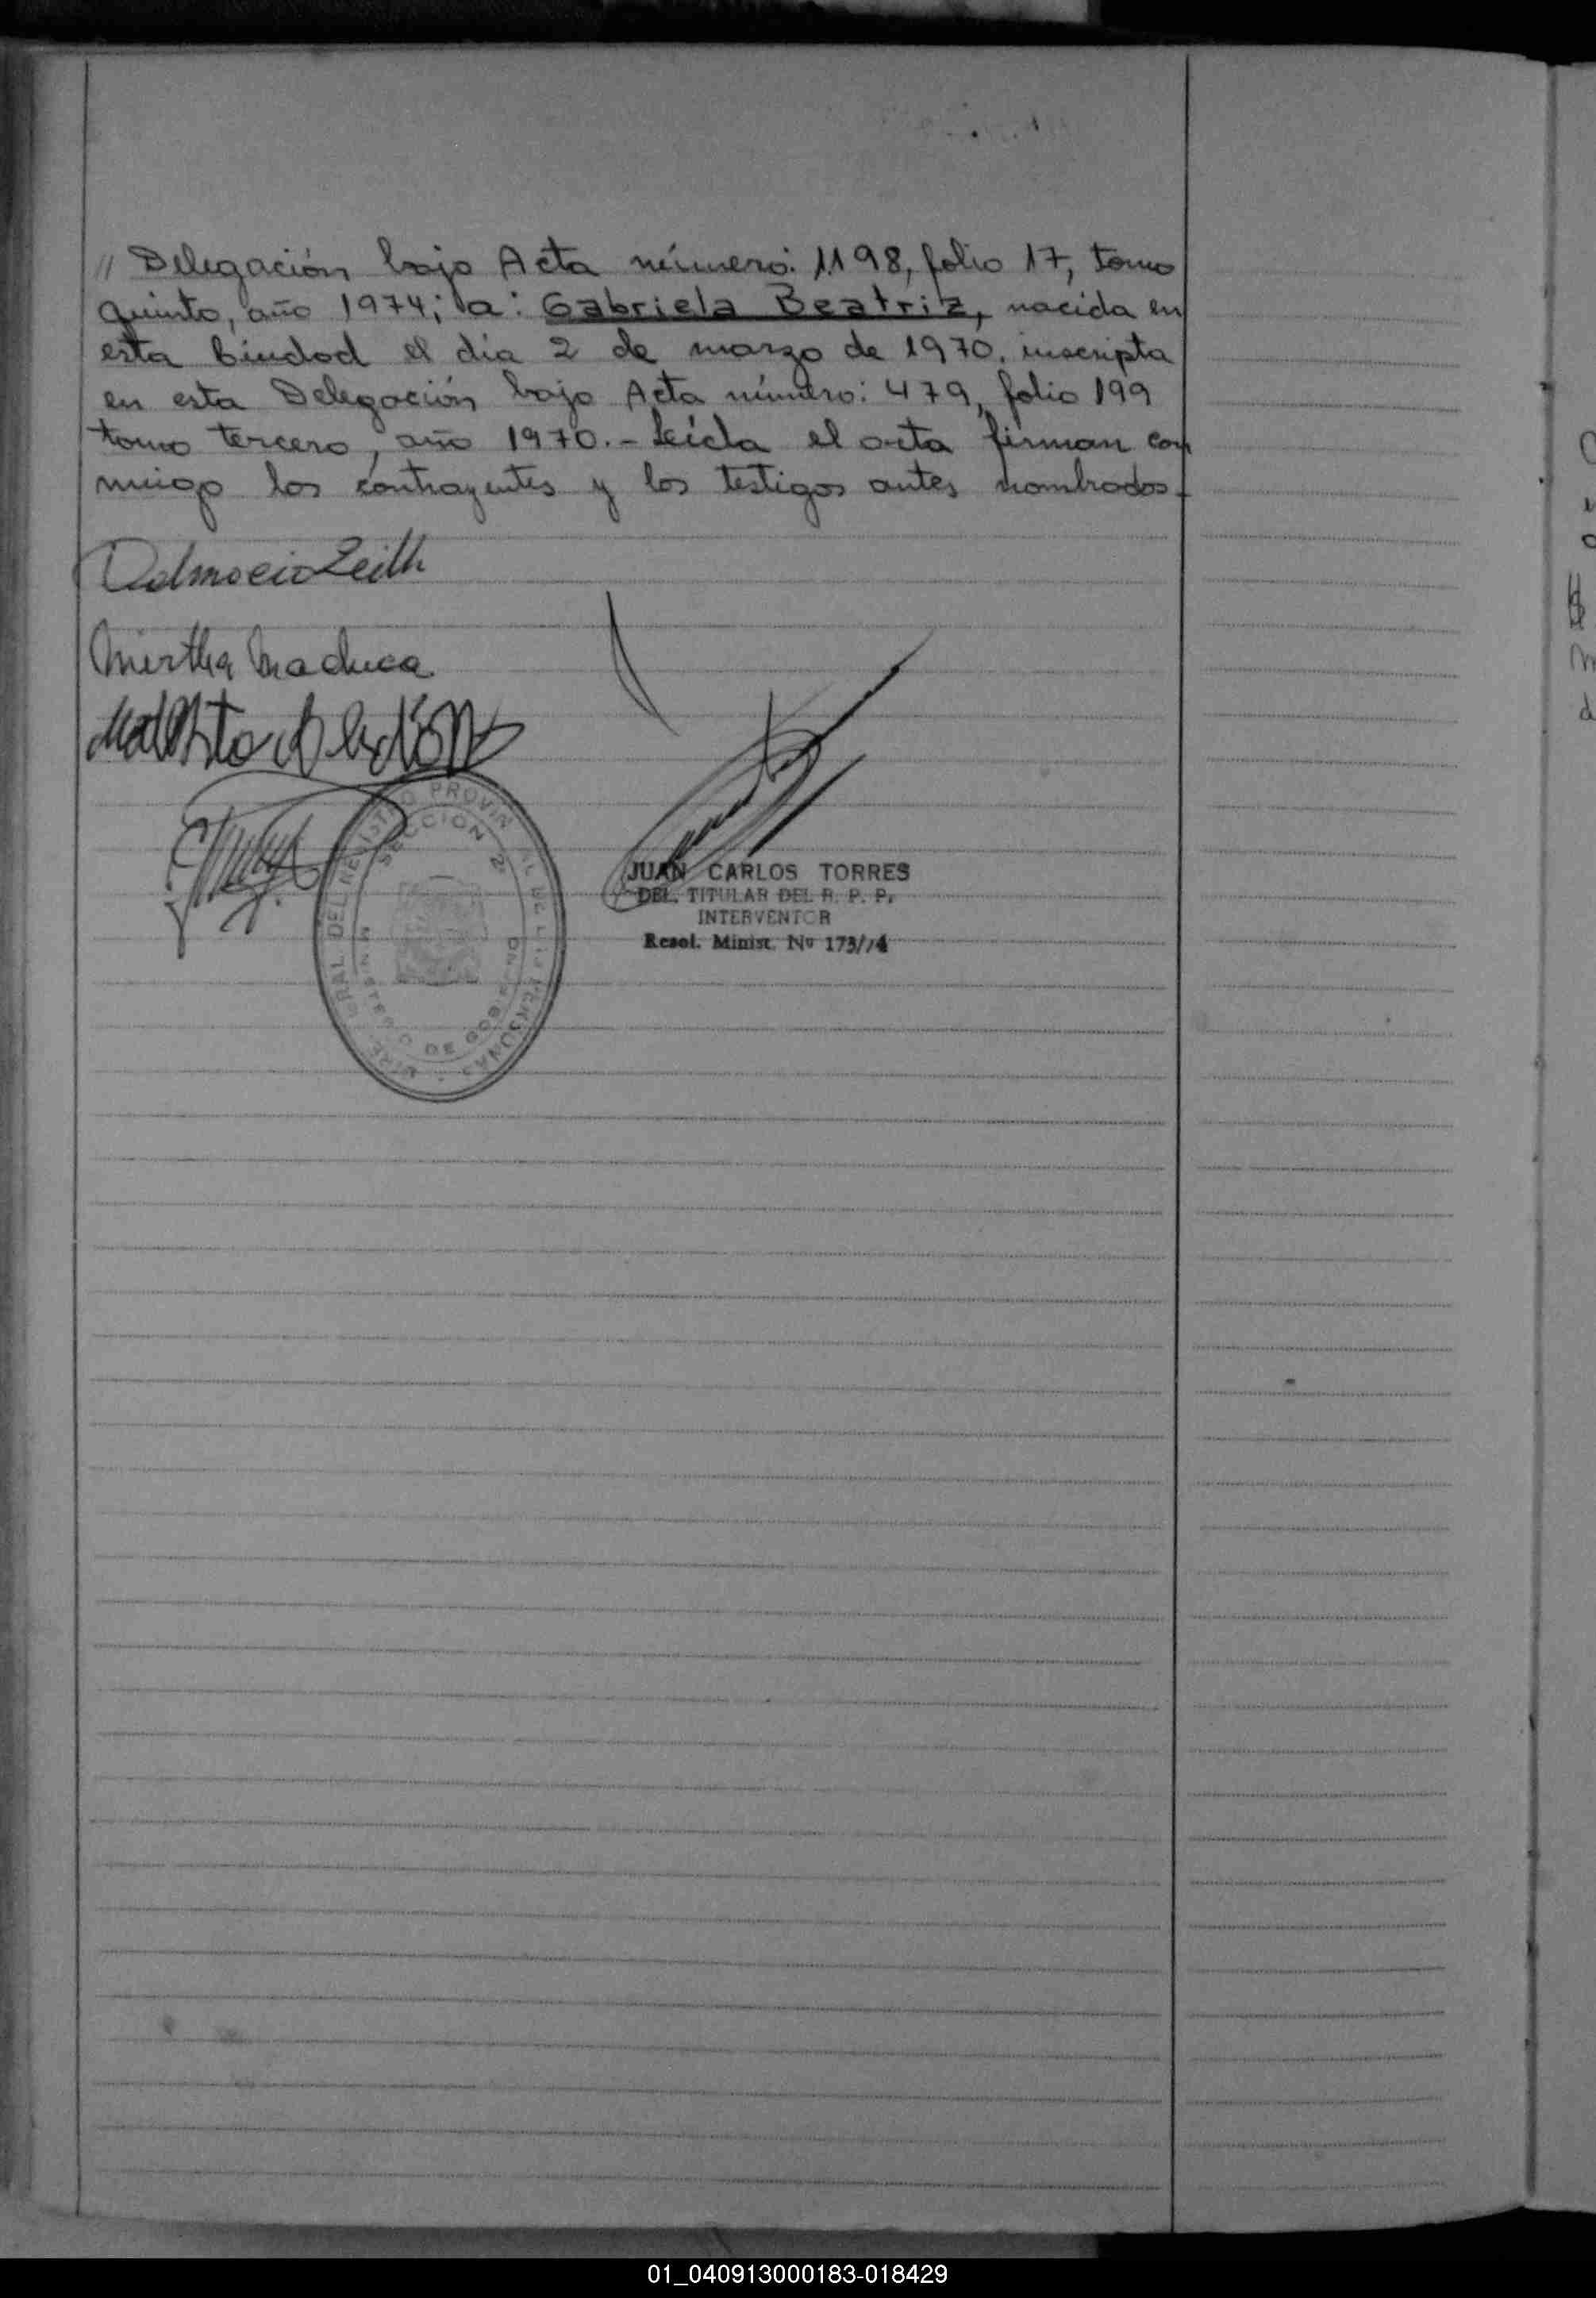 // Delegación bajo Acta número: 1198, folio 17, tomo
quinto, año 1974; a: Gabriela Beatriz, nacida en
esta Ciudad el día 2 de marzo de 1970, inscripta
en esta Delegación bajo Acta número: 479, folio 199
tomo tercero, año 1970.- Leída el acta firman con
migo los contrayentes y los testigos antes nombrados.-
Dalmacio Zeith
Mirtha Maduca
PROVIN
SECCION 2ª
MINISTERIO DE GOBIERNO
PERSONAS
JUAN CARLOS TORRES
DEL. TITULAR DEL R. P. P.
INTERVENTOR
Resol. Minist. Nº 173/74
01_040913000183-018429